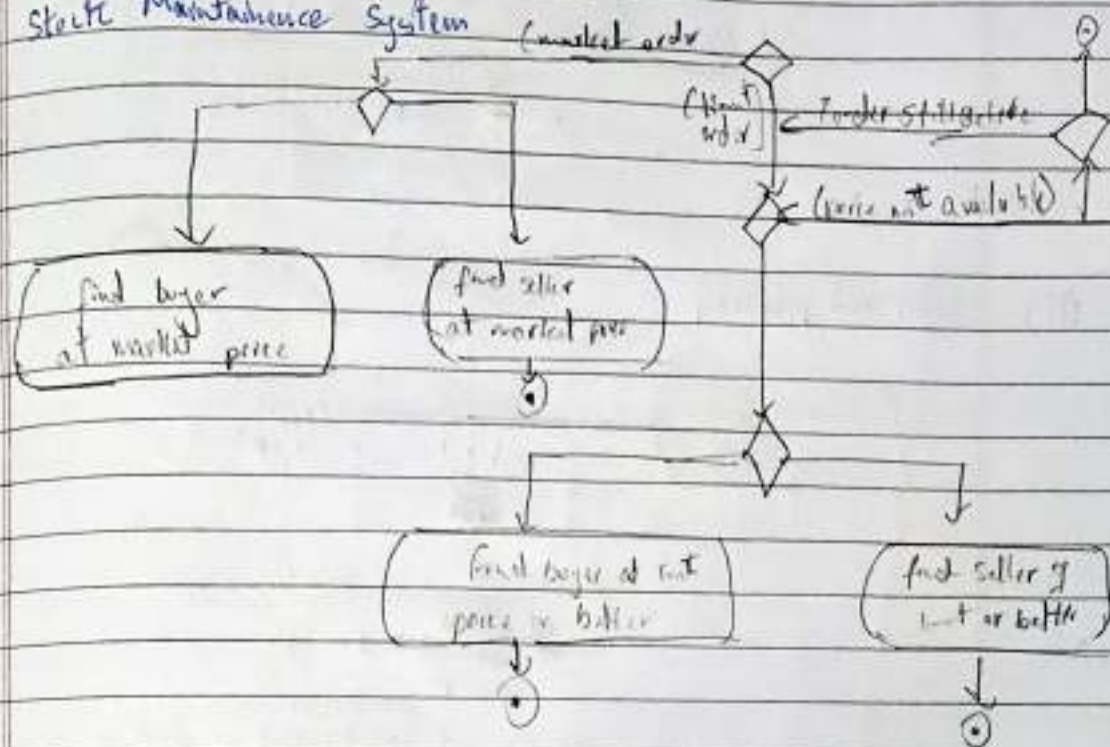 Stock Maintainence System
(market ordr
[limit
ordr]
[order still active
(price not available)
find buyer
at market price
find seller
at market price
find buyer at limit
price or better
find seller
limit or better